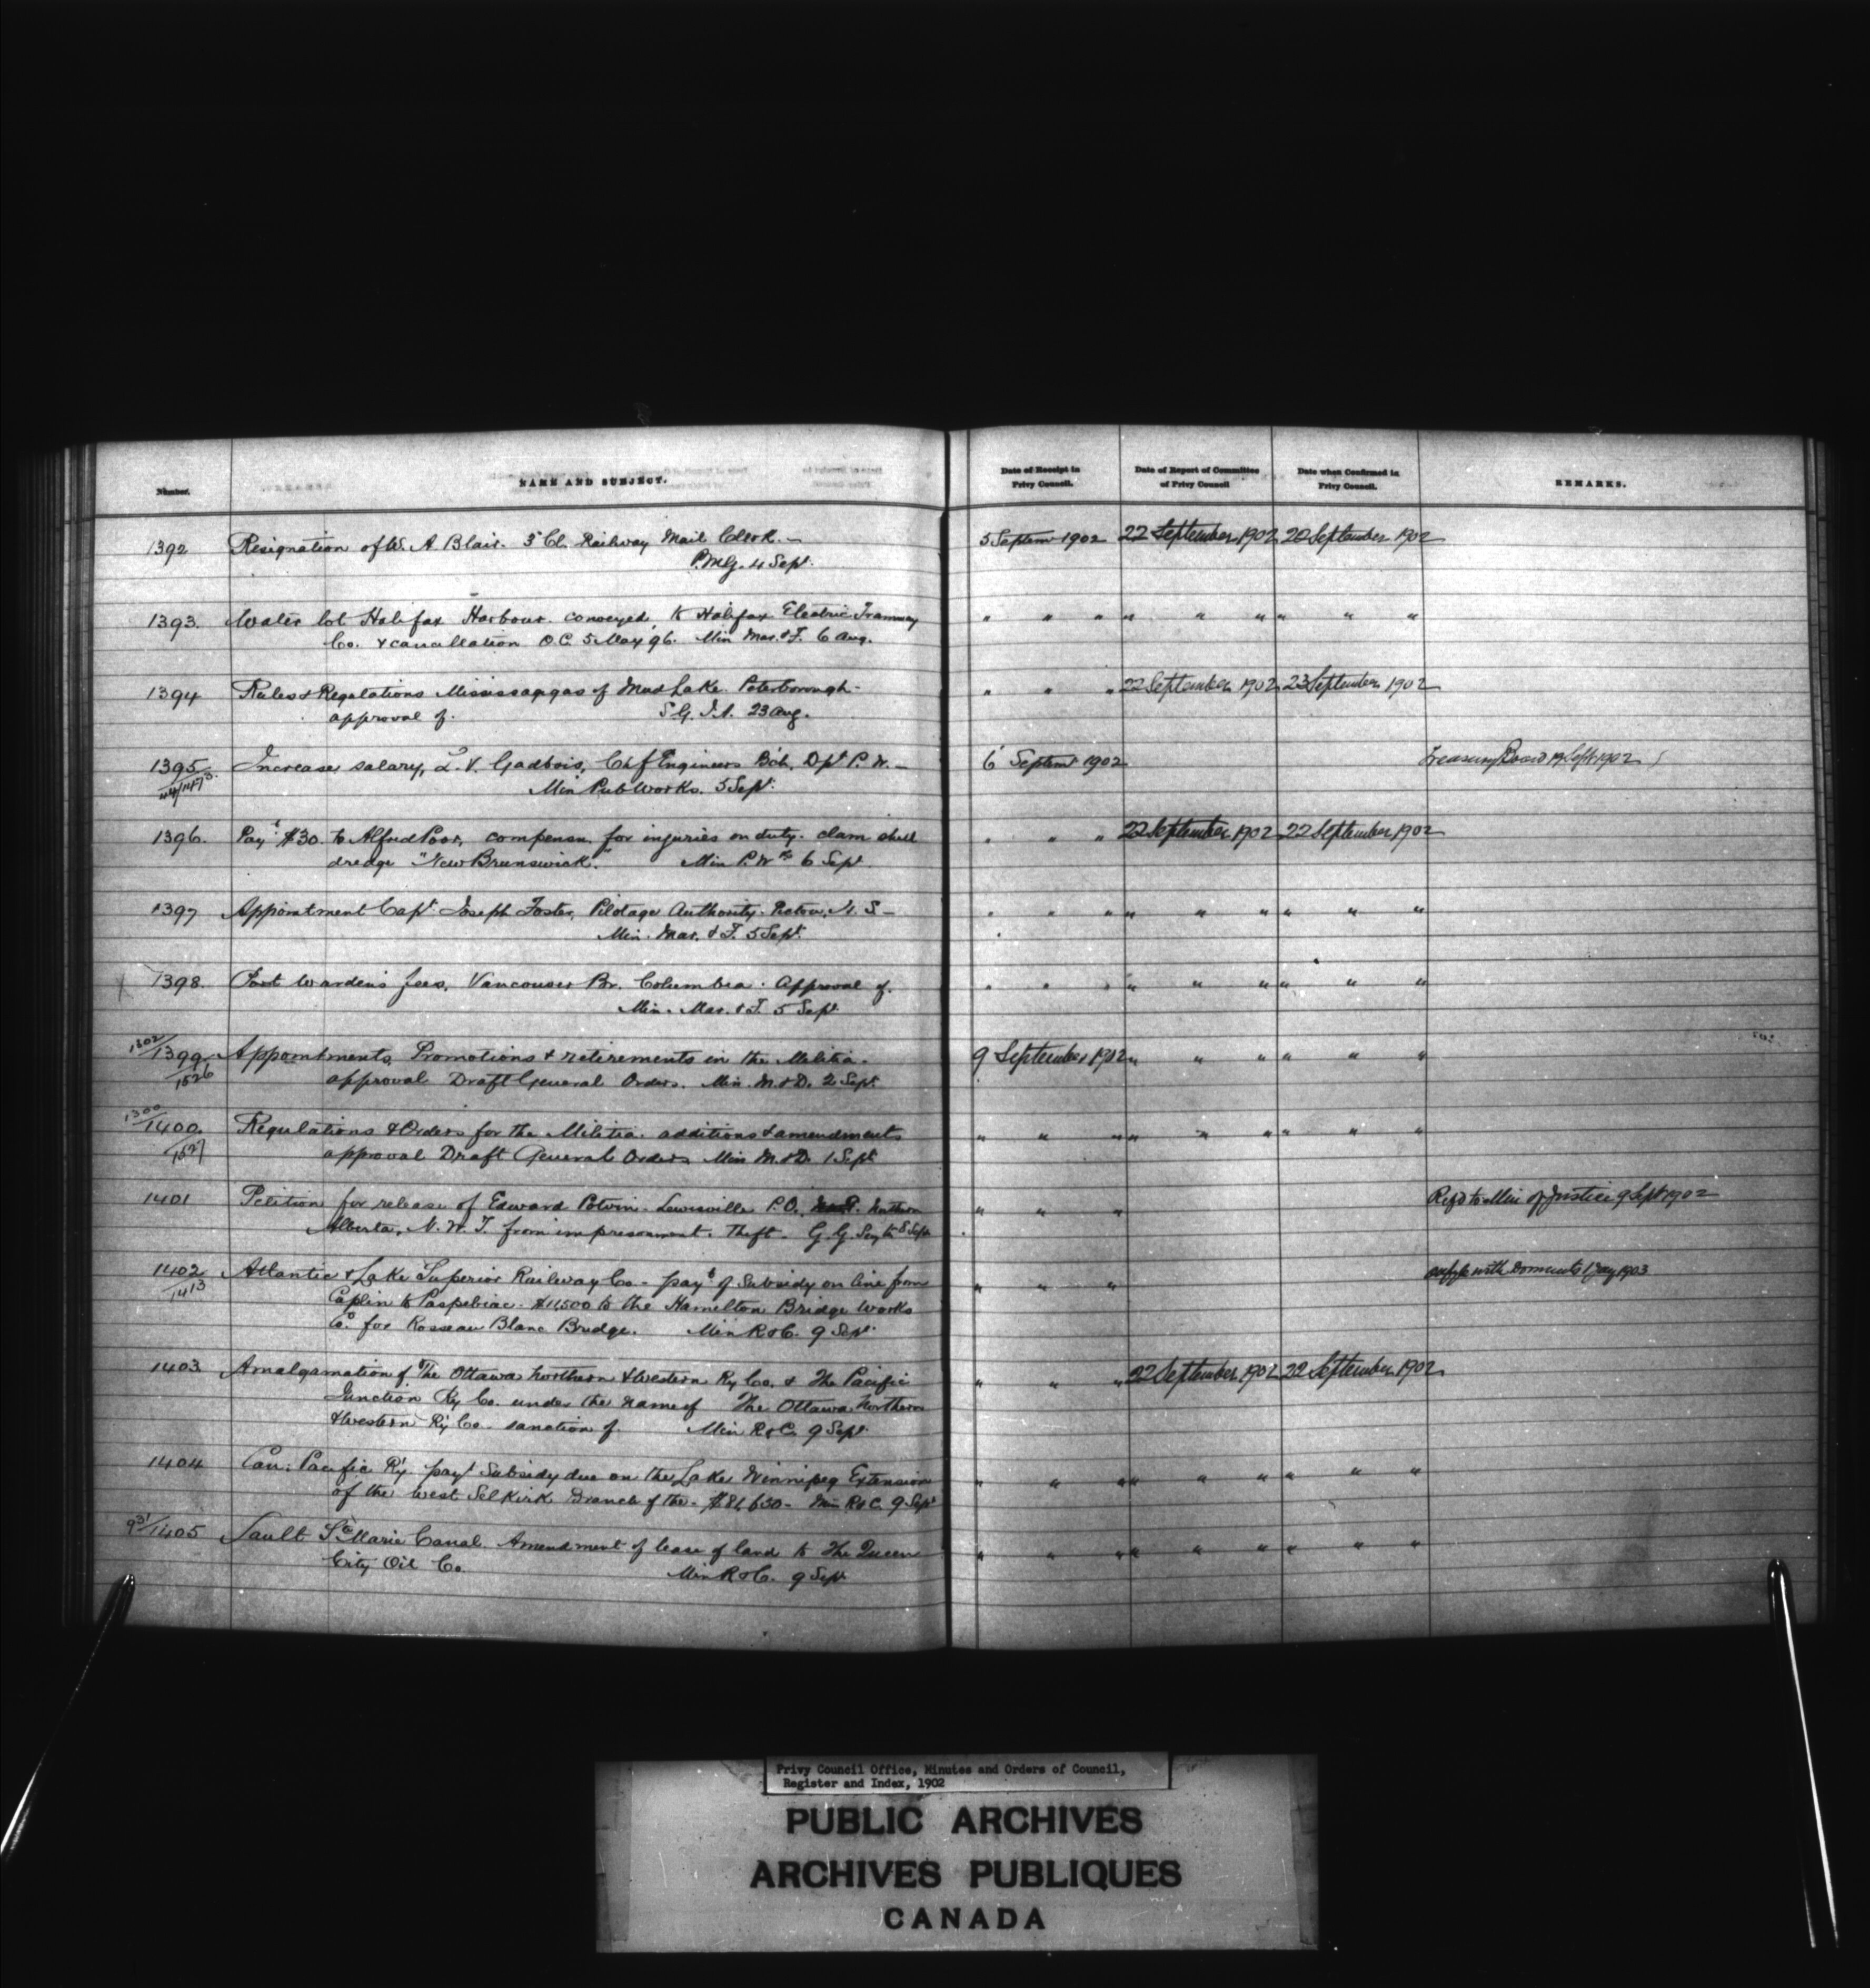 Number.
NAME AND SUBJECT.
Date of Receipt in Privy Council.
Date of Report of Committee of Privy Council
Date when Confirmed in Privy Council.
REMARKS.
1392 Resignation of W. A Blair. 3rd Cl. Railway Mail Clerk. — 5 Septemr 1902 22 September 1902 20 September 1902
P.M.G. 4 Sept.
1393. Water lot Halifax Harbour. conveyed to Halifax Electric Tramway " " " " " " " " "
Co. & cancellation O.C. 5 May 96. Min Mar. & F. 6 Aug.
1394 Rules & Regulations Mississaggas of Mud Lake. Peterborough - " " " 22 September 1902 23 September 1902
approval of. S.G. I.A. 23 Aug.
1395 Increase salary, L. V. Gadbois, Chf Engineers Bch. Dpt P. W. — 6 Septemr 1902 Treasury Board 19 Sept 1902
Min Pub Works. 5 Sept.
1396. Payt $30. to Alfred Poor, compensn. for injuries on duty. clam shell " " " 22 September 1902 22 September 1902
dredge "New Brunswick." Min P. Wks 6 Sept
1397 Appointment Capt. Joseph Foster, Pilotage Authority. Pictou, N. S — " " " " " " " " "
Min. Mar. & F. 5 Sept.
1398. Port Wardens fees, Vancouver Br. Columbia. Approval of. " " " " " " " " "
Min. Mar. & F. 5 Sept
1302/1399 Appointments, Promotions & retirements in the Militia. 9 September 1902 " " " " " "
/1526 approval Draft General Orders. Min. M. & D. 2 Sept.
1300/1400. Regulations & Orders for the Militia. additions & amendments " " " " " " " " "
/1527 approval Draft General Orders Min M. & D. 1 Sept
1401 Petition for release of Edward Potvin. Lewisville P.O. Northern " " " Refd to Min of Justice 9 Sept 1902
Alberta, N. W. T. from imprisonment. Theft. G. G. Secy 8 Sept
1402 Atlantic & Lake Superior Railway Co. - payt of subsidy on line from " " " 1903
/1413 Caplin to Paspebiac. $11500 to the Hamelton Bridge Works
Co. for Rosseau Blanc Bridge. Min R & C. 9 Sept.
1403 Amalgamation of The Ottawa Northern & Western Ry Co. & The Pacific " " " 22 September 1902 22 September 1902
Junction Ry Co. under the name of The Ottawa Northern
& Western Ry Co. sanction of. Min R & C. 9 Sept
1404 Can: Pacific Ry. payt Subsidy due on the Lake Winnipeg Extension " " " " " " " " "
of the West Selkirk Branch of the - $81,630 - Min R & C. 9 Sept
931/1405 Sault Ste Marie Canal Amendment of lease of land to The Queen " " " " " " " " "
City Oil Co. Min R & C. 9 Sept
Privy Council Office, Minutes and Orders of Council,
Register and Index, 1902
PUBLIC ARCHIVES
ARCHIVES PUBLIQUES
CANADA